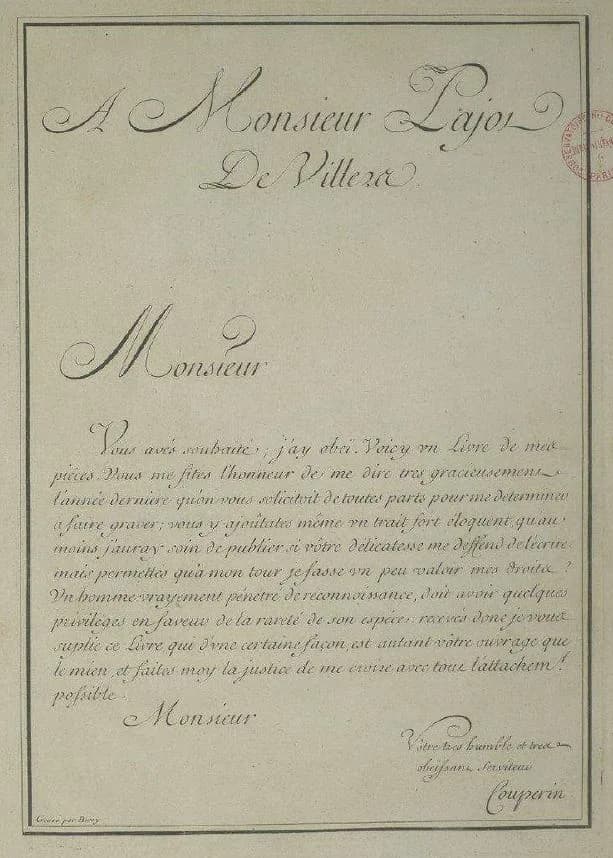 A Monsieur Pajot
De Villers
Monsieur
Vous avés souhaité; j'ay obeï. Voicy un Livre de mes
piéces. Vous me fites l'honneur de me dire tres gracieusement
l'année derniere qu'on vous solicitoit de toutes parts pour me determiner
a faire graver; vous y ajoûtates même un trait fort éloquent, qu'au
moins j'auray soin de publier, si vôtre délicatesse me deffend de l'écrire
mais permettes qu'a mon tour je fasse un peu valoir mes droits?
Un homme vrayement pénetré de reconnoissance, doit avoir quelques
privilèges en faveur de la rareté de son espéce: recevés donc je vous
suplie ce Livre qui d'une certaine façon, est autant vôtre ouvrage que
le mien, et faites moy la justice de me croire avec tout l'attachem.t
possible
Monsieur
Vôtre tres humble et tres
obeïssant Serviteur
Couperin
Gravé par Berey